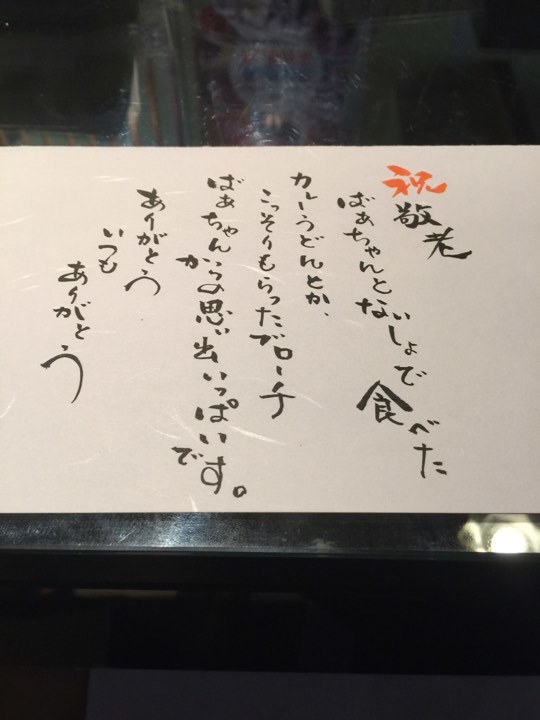 祝敬老
ばぁちゃんとないしょで食べた
カレーうどんとか、
こっそりもらったブローチ
ばぁちゃんからの思い出いっぱいです。
ありがとう
いつも
ありがとう